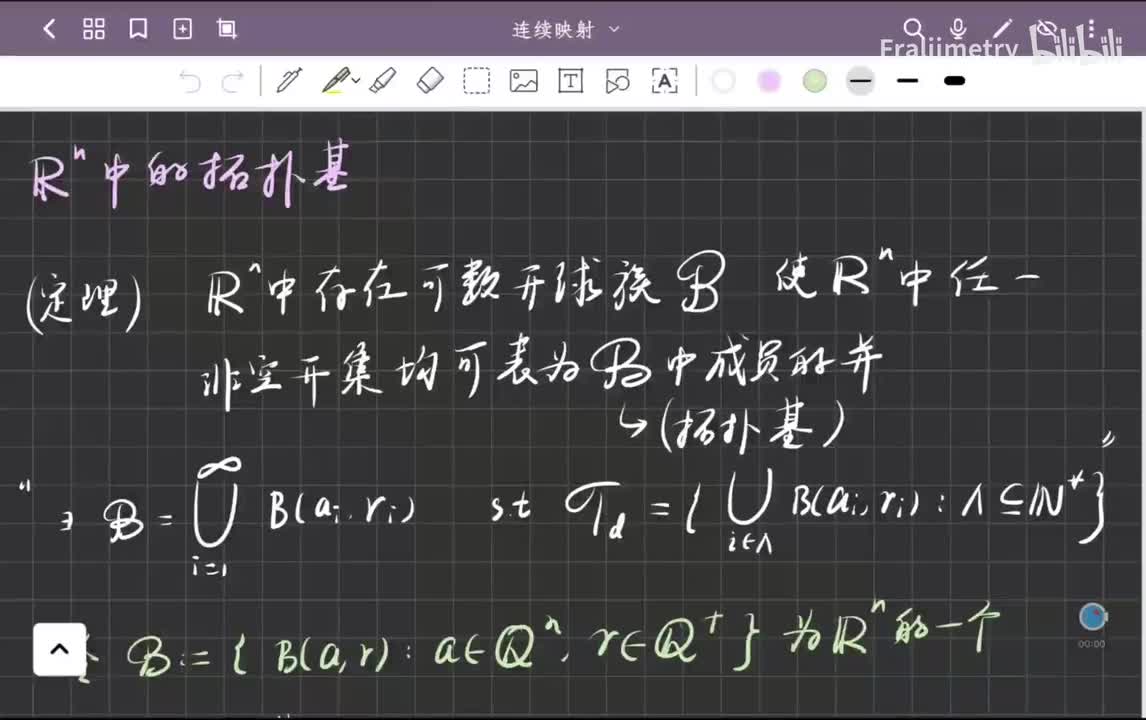 连续映射
Fraliimetry bilibili
ℝⁿ中的拓扑基
(定理) ℝⁿ中存在可数开球族 ℬ 使ℝⁿ中任一
非空开集均可表为ℬ中成员的并
↳(拓扑基)
"∃ ℬ = ⋃_{i=1}^{∞} B(aᵢ, rᵢ) s.t 𝒯_d = { ⋃_{i∈Λ} B(aᵢ, rᵢ) : Λ ⊆ ℕ* }"
ℬ := { B(a,r) : a∈ℚⁿ, r∈ℚ⁺ } 为ℝⁿ的一个
00:00